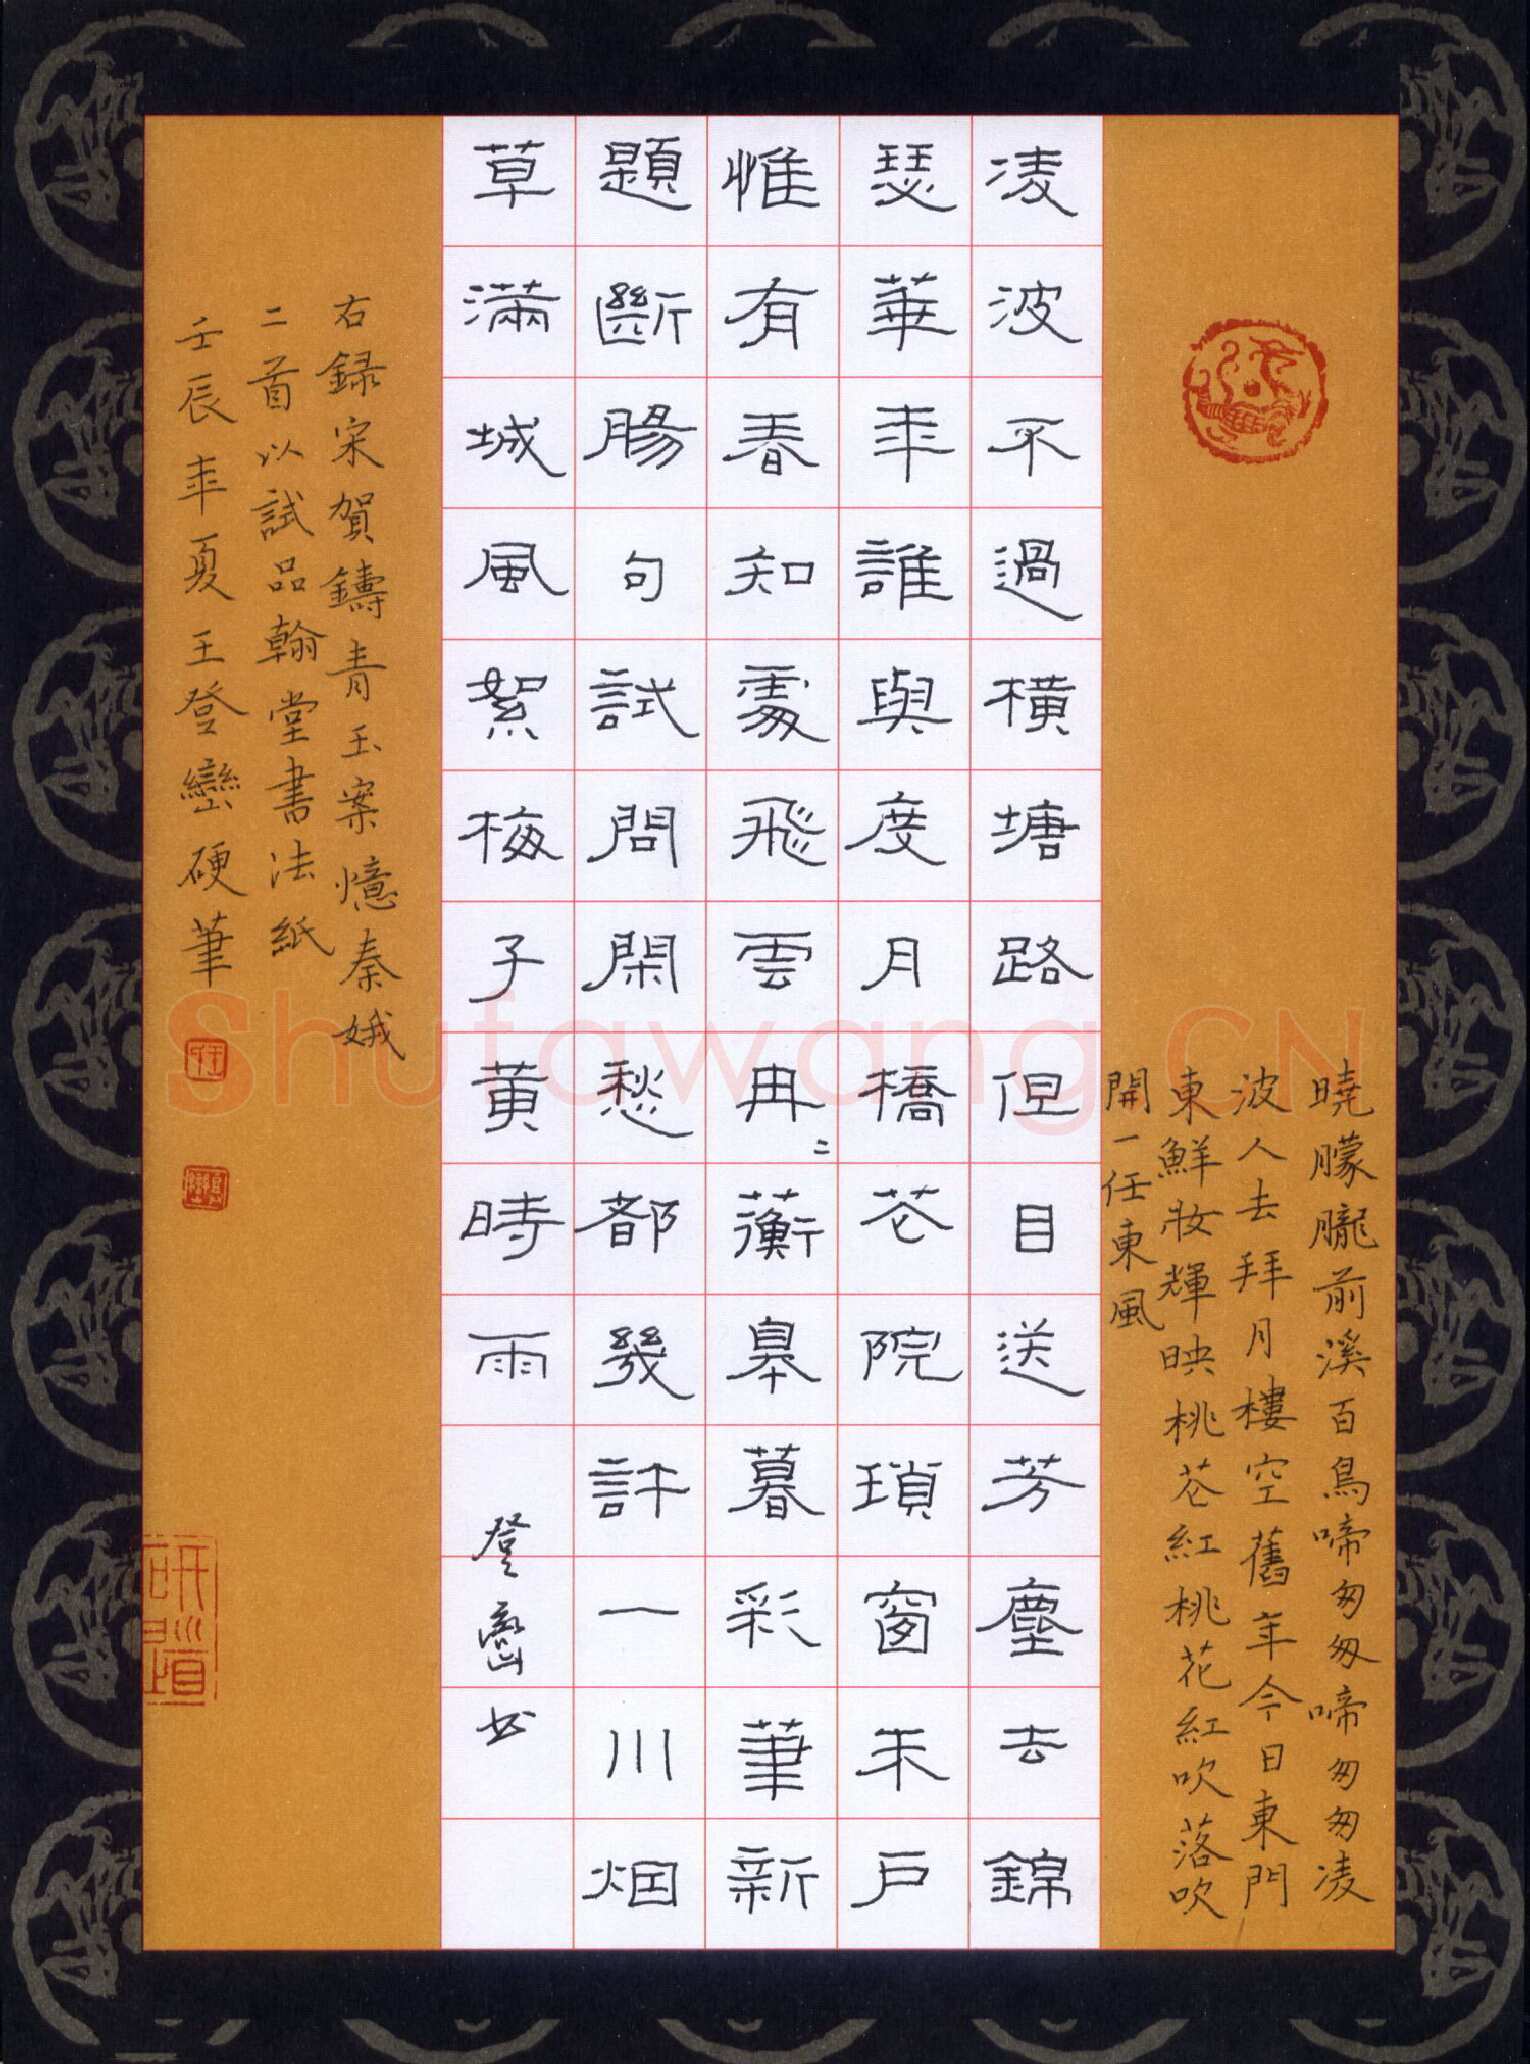 曉朦朧前溪百鳥啼匆匆啼匆匆凌
波人去拜月樓空舊年今日東門
東鮮妝輝映桃花紅桃花紅吹落吹
開一任東風
凌波不過橫塘路但目送芳塵去錦
瑟華年誰與度月橋花院瑣窗朱戶
惟有春知處飛雲冉〻蘅皋暮彩筆新
題斷腸句試問閑愁都幾許一川烟
草滿城風絮梅子黃時雨 登巒书
右録宋賀鑄青玉案憶秦娥
二首以試品翰堂書法紙
壬辰年夏王登巒硬筆
Shufawang.CN